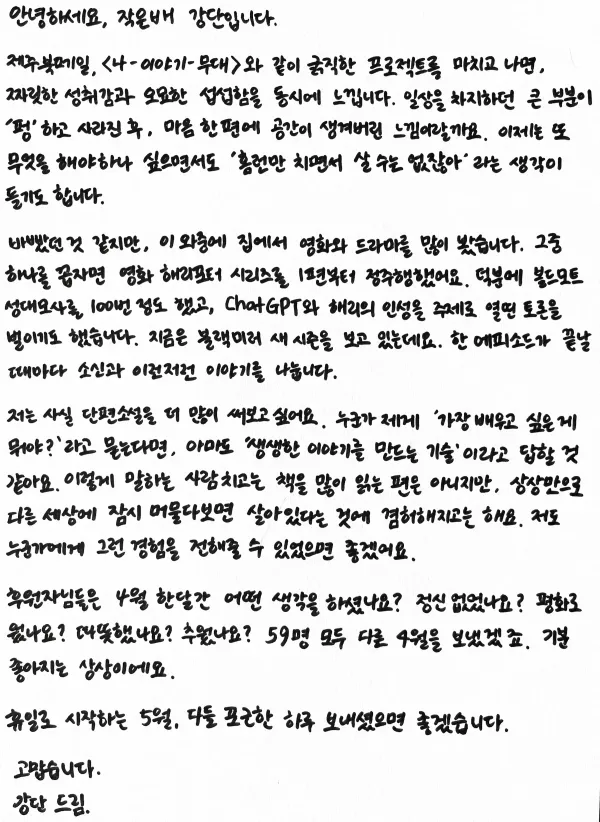 안녕하세요, 작은배 강단입니다.
제주북페일, <나-이야기-무대>와 같이 굵직한 프로젝트를 마치고 나면,
짜릿한 성취감과 오묘한 섭섭함을 동시에 느낍니다. 일상을 차지하던 큰 부분이
'펑' 하고 사라진 후, 마음 한편에 공간이 생겨버린 느낌이랄까요. 이제는 또
무엇을 해야하나 싶으면서도 '홈런만 치면서 살 수는 없잖아' 라는 생각이
들기도 합니다.
바빴던 것 같지만, 이 와중에 집에서 영화와 드라마를 많이 봤습니다. 그중
하나를 꼽자면 영화 해리포터 시리즈를 1편부터 정주행했어요. 덕분에 볼드모트
성대모사를 100번 정도 했고, ChatGPT와 해리의 인성을 주제로 열띤 토론을
벌이기도 했습니다. 지금은 블랙미러 새 시즌을 보고 있는데요. 한 에피소드가 끝날
때마다 소신과 이런저런 이야기를 나눕니다.
저는 사실 단편소설을 더 많이 써보고 싶어요. 누군가 제게 '가장 배우고 싶은 게
뭐야?'라고 묻는다면, 아마도 '생생한 이야기를 만드는 기술'이라고 답할 것
같아요. 이렇게 말하는 사람치고는 책을 많이 읽는 편은 아니지만, 상상만으로
다른 세상에 잠시 머물다보면 살아있다는 것에 겸허해지고는 해요. 저도
누군가에게 그런 경험을 전해줄 수 있었으면 좋겠어요.
후원자님들은 4월 한달간 어떤 생각을 하셨나요? 정신 없었나요? 평화로
웠나요? 따뜻했나요? 추웠나요? 59명 모두 다른 4월을 보냈겠죠. 기분
좋아지는 상상이에요.
휴일로 시작하는 5월, 다들 포근한 하루 보내셨으면 좋겠습니다.
고맙습니다.
강단 드림.